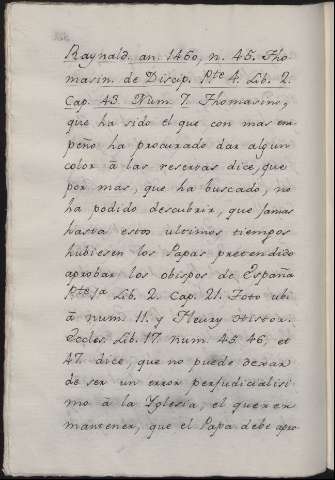 Raynald. an. 1460, n. 45. Tho
masin. de Discip. Pte 4. Lib. 2.
Cap. 43. Num. 7. Thomasino,
que ha sido el que con mas em
peño ha procurado dar algun
color â las reservas dice, que
por mas, que ha buscado, no
ha podido descubrir, que jamas
hasta estos ultimos tiempos
hubiesen los Papas pretendido
aprobar los obispos de España
Pte 1a Lib. 2. Cap. 21. Toto ubi
â num. 11. y Fleury Histor.
Eccles. Lib. 17. num. 45. 46, et
47. dice, que no puede dexar
de ser un error perjudicialisi
mo â la Yglesia, el querer
mantener, que el Papa debe apro